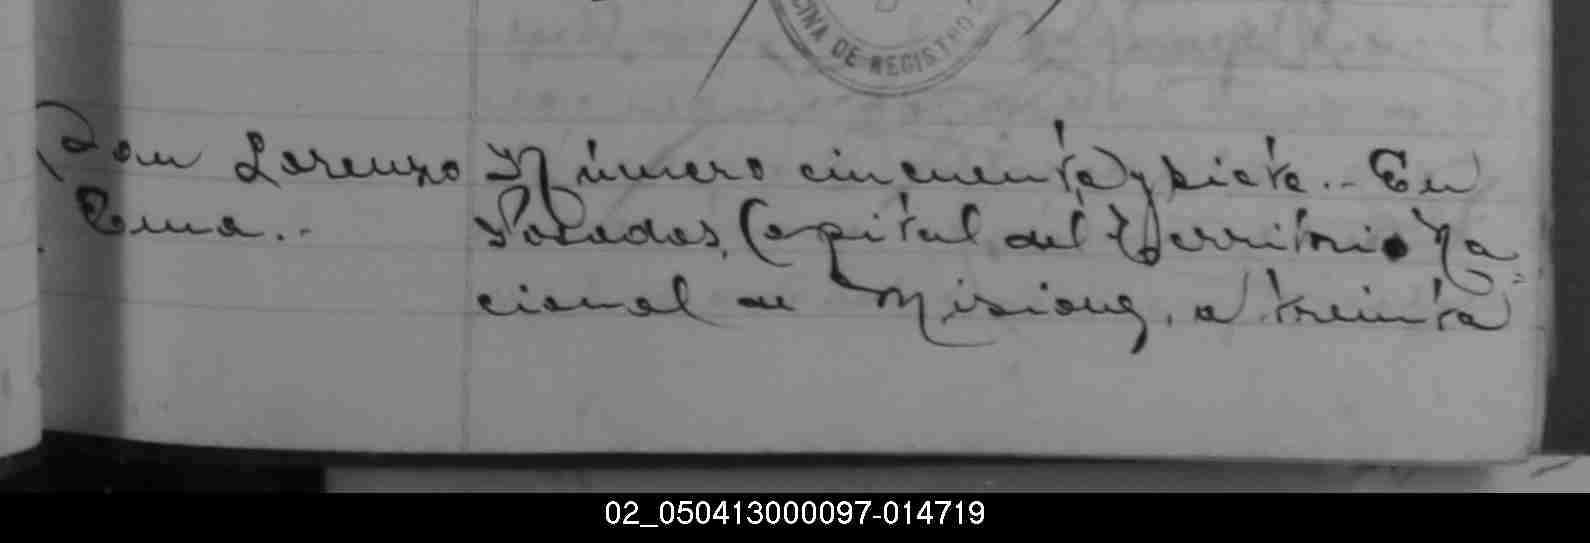 CINA DE REGISTRO
Don Lorenzo
Número cincuenta y siete.. En
Posadas, Capital del Territorio Na=
cional de Misiones, a treinta
02_050413000097-014719